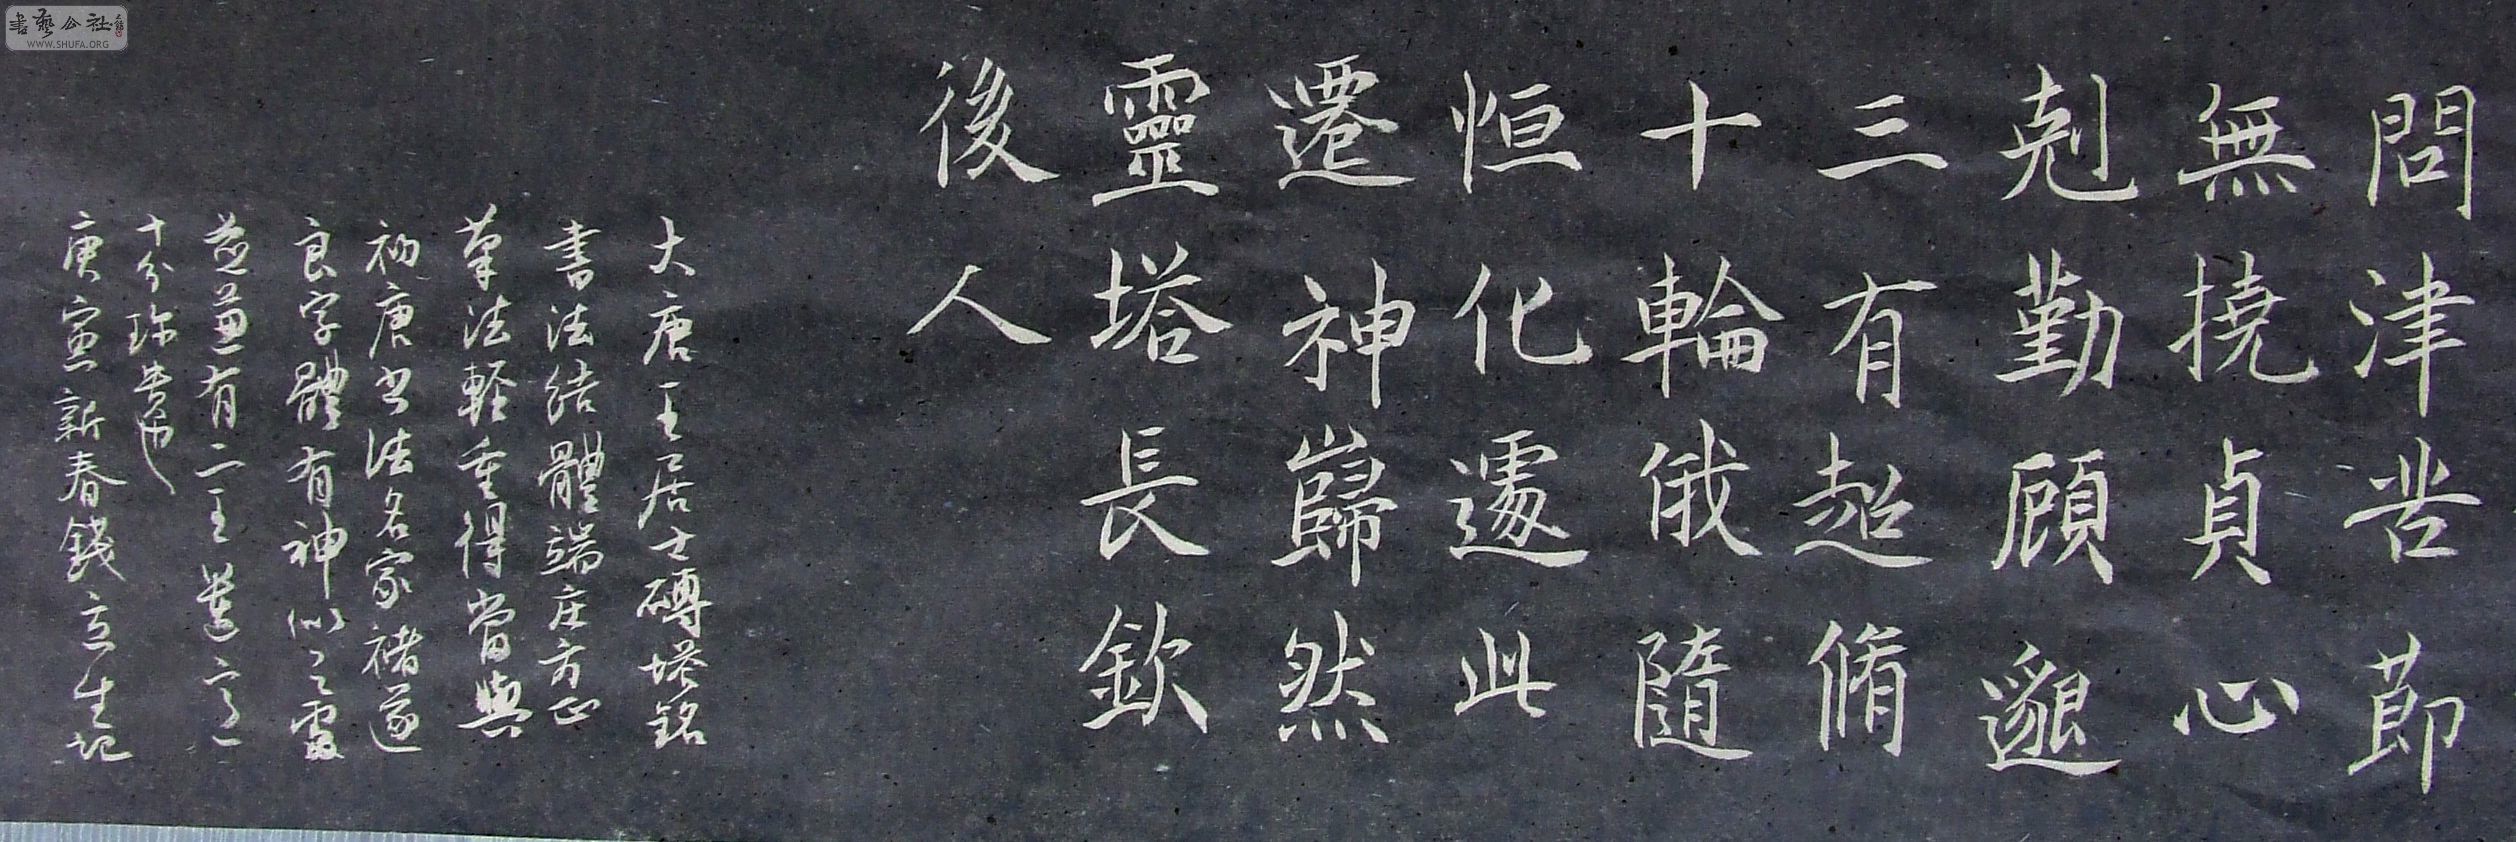 問津苦節
無撓貞心
剋勤顧邈
三有超脩
十輪俄隨
恒化遽此
遷神巋然
靈塔長欽
後人
大唐王居士磚塔銘
書法結體端庄方正
筆法輕重得當與
初唐書法名家褚遂
良字體有神似之處
並兼有二王遺意
十分珍貴也
庚寅新春錢立生記
書藝公社
WWW.SHUFA.ORG